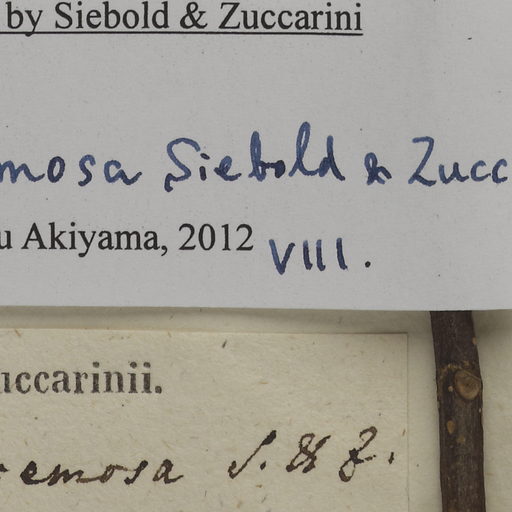 by Siebold & Zuccarini
mosa Siebold & Zucc
u Akiyama, 2012 VIII.
uccarinii.
emosa S. & Z.